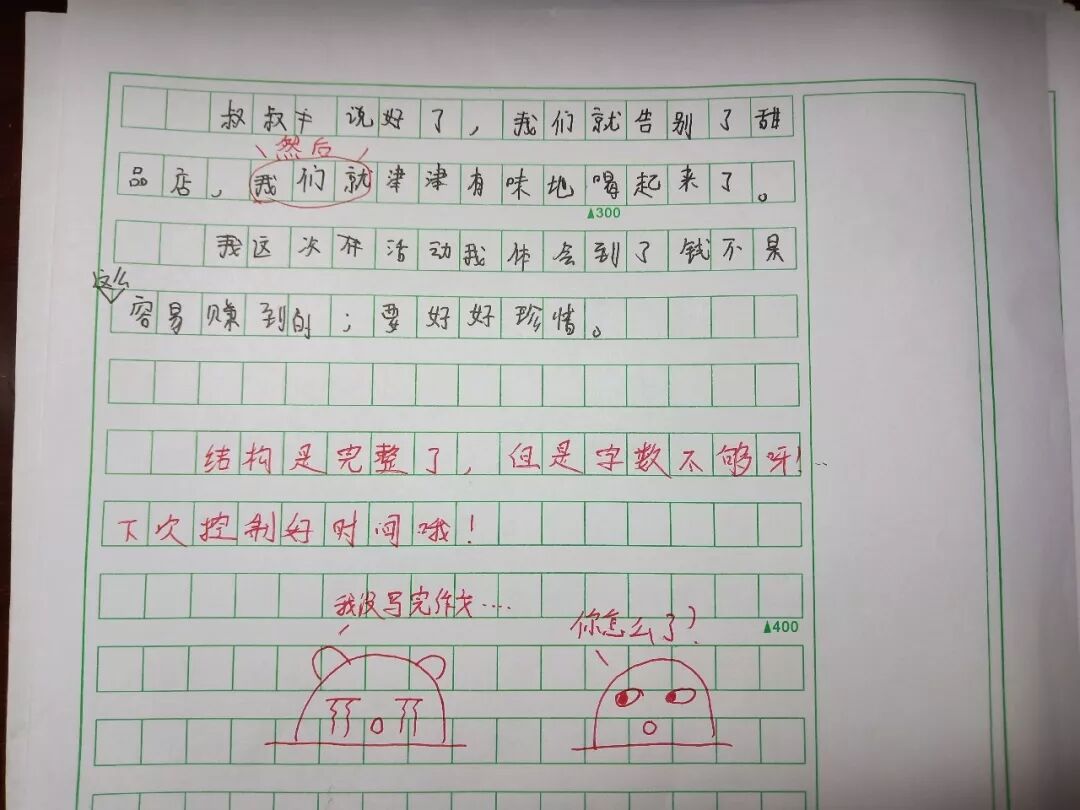 叔叔说好了，我们就告别了甜
然后
品店，我们就津津有味地喝起来了。
▲300
我这次在活动我体会到了钱不是
这么
容易赚到的；要好好珍惜。
结构是完整了，但是字数不够呀！…
下次控制好时间哦！
我没写完作文....
你怎么了？
▲400